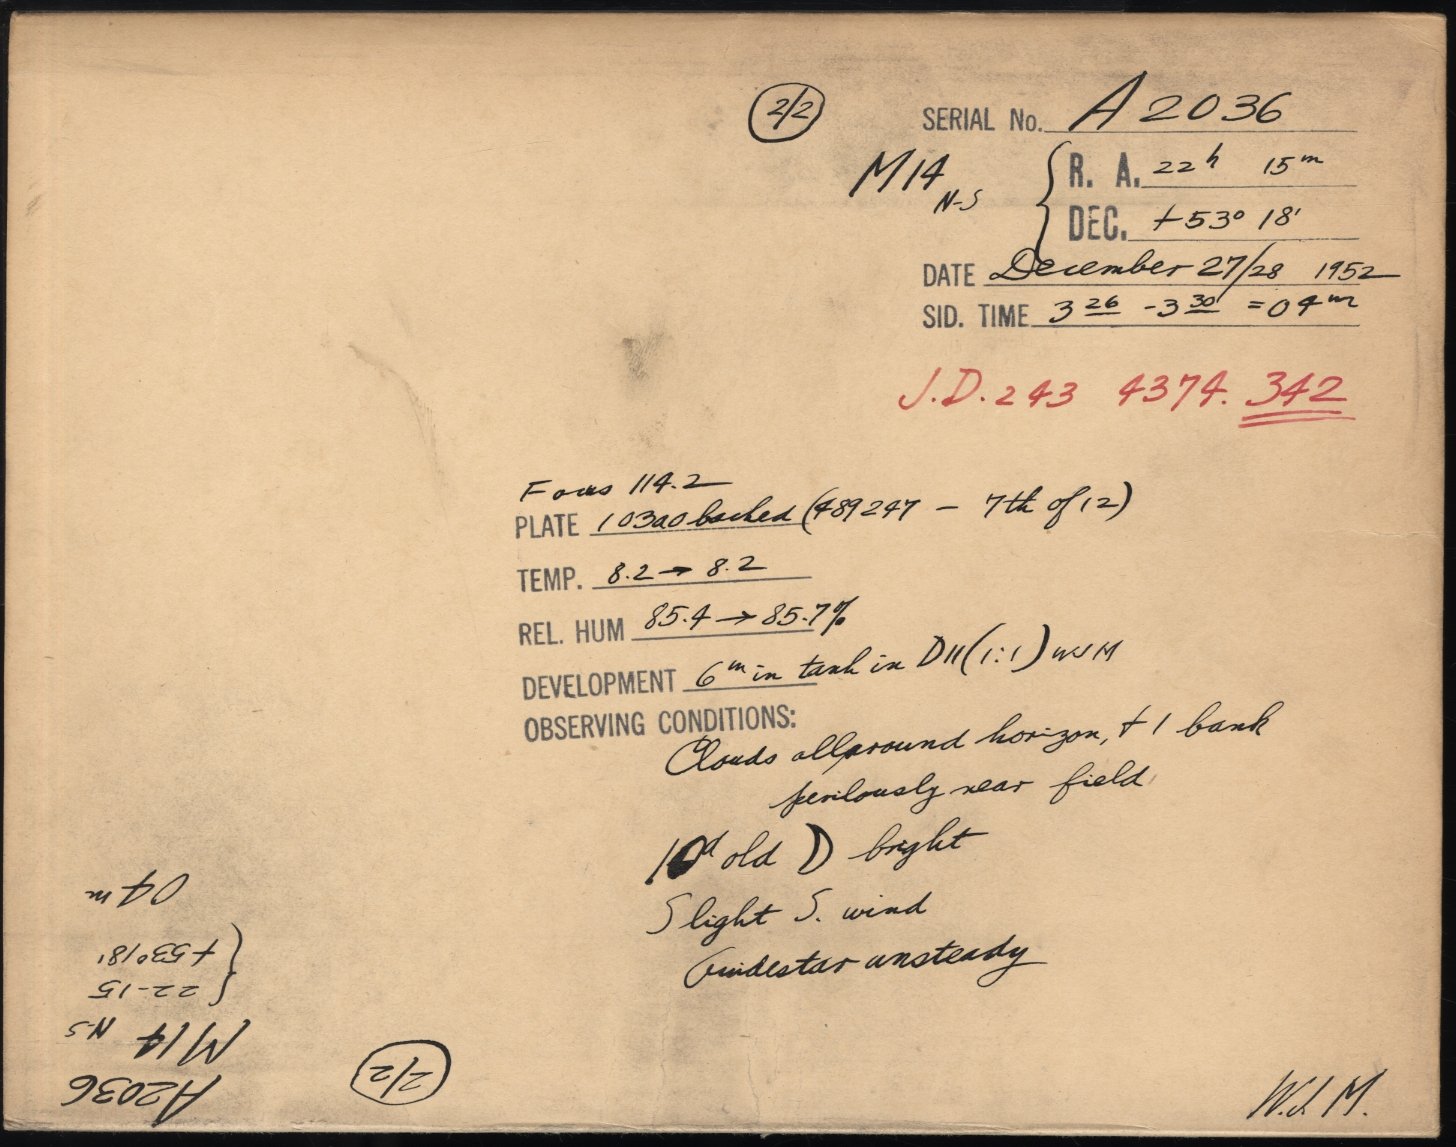 2/2
SERIAL No. A2036
M14 N-S
R. A. 22h 15m
DEC. +53° 18'
DATE December 27/28 1952
SID. TIME 3 26 - 3 30 = 04m
J.D. 243 4374.342
Focus 114.2
PLATE 103aO backed (489247 - 7th of 12)
TEMP. 8.2 → 8.2
REL. HUM 85.4 → 85.7%
DEVELOPMENT 6m in tank in D11 (1:1) WJM
OBSERVING CONDITIONS:
Clouds all around horizon, + 1 bank
perilously near field
10d old ☽ bright
Slight S. wind
Guidestar unsteady
W.J.M.
A2036
M14 N-S
22-15
+53°18'
04m
2/2